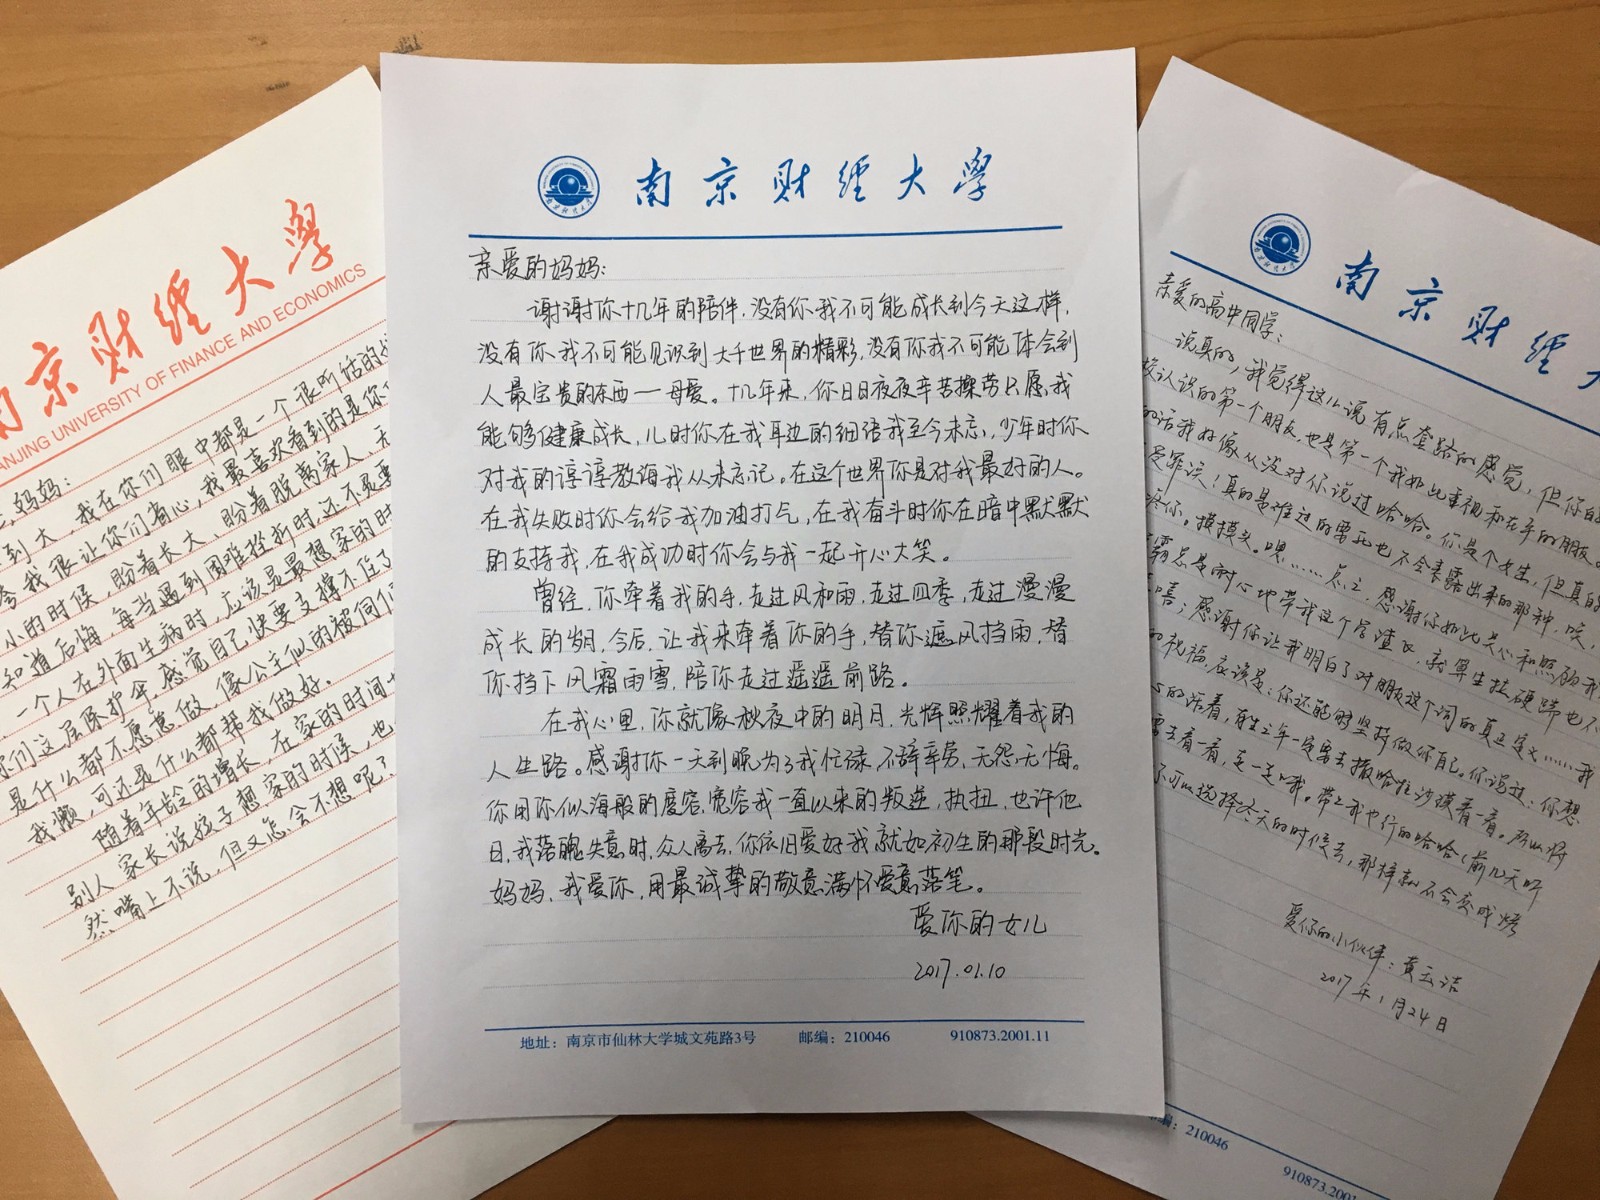 南京财经大学
NANJING UNIVERSITY OF FINANCE AND ECONOMICS
妈妈:
到大,我在你们眼中都是一个很听话的
夸我很让你们省心,我最喜欢看到的是你
小的时候,盼着长大、盼着脱离家人、无
知道后悔,每当遇到困难挫折时,还不是要
一个人在外面生病时,应该是最想家的时
你们这层保护伞,感觉自己快要支撑不住了
是什么都不愿意做,像公主似的被伺候
我懒,可还是什么都帮我做好。
随着年龄的增长,在家的时间
别人家长说孩子想家的时候,也
然嘴上不说,但又怎会不想呢?
南京财经大学
亲爱的妈妈:
谢谢你十几年的陪伴,没有你我不可能成长到今天这样,
没有你我不可能见识到大千世界的精彩,没有你我不可能体会到
人最宝贵的东西一母爱。十几年来,你日日夜夜辛苦操劳只愿我
能够健康成长,儿时你在我耳边的细语我至今未忘,少年时你
对我的谆谆教诲我从未忘记。在这个世界你是对我最好的人。
在我失败时你会给我加油打气,在我奋斗时你在暗中默默
的支持我,在我成功时你会与我一起开心大笑。
曾经,你牵着我的手,走过风和雨,走过四季,走过漫漫
成长的岁月,今后,让我来牵着你的手,替你遮风挡雨,替
你挡下风霜雨雪,陪你走过遥遥前路。
在我心里,你就像秋夜中的明月,光辉照耀着我的
人生路。感谢你一天到晚为了我忙碌,不辞辛劳,无怨无悔。
你用你似海般的度容,宽容我一直以来的叛逆,执扭,也许他
日,我落魄失意时,众人离去,你依旧爱好我就如初生的那段时光。
妈妈,我爱你,用最诚挚的敬意满怀爱意落笔。
爱你的女儿
2017.01.10
地址:南京市仙林大学城文苑路3号 邮编:210046 910873.2001.11
南京财经大
亲爱的高中同学:
说真的,我觉得这儿说有点套路的感觉,但你的
校认识的第一个朋友,也是第一个我如此重视和在乎的朋友。
的话我好像从没对你说过哈哈。你是个女生,但真的
是罪误!真的是难过的要死也不会表露出来的那种,唉,
疼你。摸摸头。嗯……总之,感谢你如此关心和照顾我
霸总是耐心地带我这个学渣
嘻;感谢你让我明白了对朋友这个词的真正定义……我
的祝福,应该是:你还能够坚持做你自己。你说过:你想
的活着,有生之年一定要去撒哈拉沙漠看看。所以将
要去看一看,走一走哦。带上我也行的哈哈(前几天听
可以选择冬天的时候去,那样就不会变成烤
爱你的小伙伴:黄云洁
2017年1月24日
编:210046
910873.2001.11